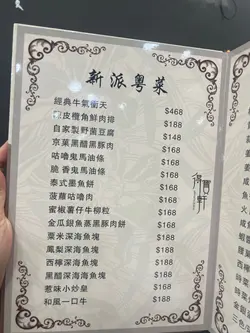 新派粵菜
經典牛氣衝天 $468
皮欖角鮮肉排 $188
自家製野菌豆腐 $148
京葉黑醋黑豚肉 $168
咕嚕鬼馬油條 $168
脆香鬼馬油條 $168
泰式墨魚餅 $168
菠蘿咕嚕肉 $168
蜜椒薯仔牛柳粒 $168
金瓜銀魚蒸黑豚肉餅 $168
粟米深海魚塊 $188
鳳梨深海魚塊 $188
西檸深海魚塊 $188
黑醋深海魚塊 $188
惹味小炒皇 $168
和風一口牛 $188
得寶軒